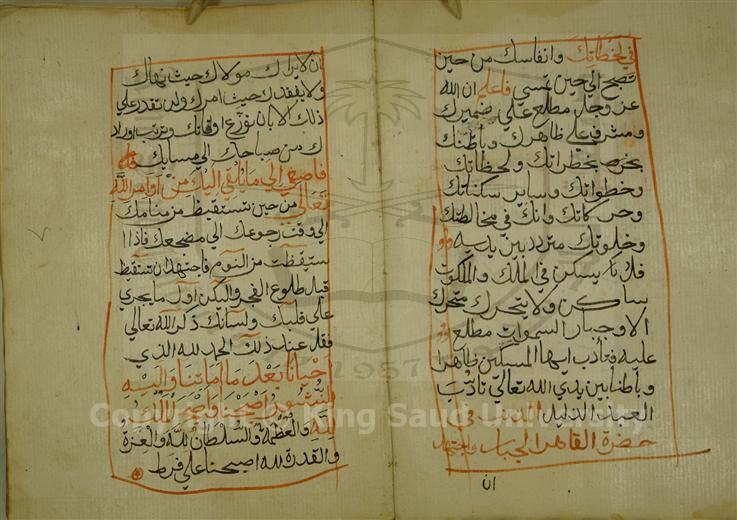 في لحظاتك وانفاسك من حين
تصبح الي حين تمسي فاعلم ان الله
عز وجل مطلع علي ضميرك
ومشرف علي ظاهرك وباطنك
بخطراتك ولحظاتك
وخطواتك وساير سكناتك
وحركاتك وانك في مخالطتك
وخلوتك متردد بين يديه
فلا يسكن في الملك والملكوت
ساكن ولا يتحرك متحرك
الا وجبار السموات مطلع
عليه فتأدب ايها المسكين ظاهرا
وباطنا بين يدي الله تعالي تأدب
العبد الذليل المذنب في
حضرة القاهر الجبار واجتهد
ان
ان لا يراك مولاك حيث نهاك
ولا يفقدك حيث امرك ولن تقدر علي
ذلك الا بان توزع اوقاتك وترتب اوراد
ك من صباحك الي مسايك
فاصغ الي ما يلقي اليك من اوامر الله
تعالي من حين تستيقظ من منامك
الي وقت رجوعك الي مضجعك فاذا ا
ستيقظت من النوم فاجتهد ان تستيقظ
قبل طلوع الفجر وليكن اول ما يجري
علي قلبك ولسانك ذكر الله تعالي
فقل عند ذلك الحمد لله الذي
احيانا بعد ما اماتنا واليه
النشور اصبحنا واصبح الملك
لله والعظمة والسلطان لله والعزة
والقدرة لله اصبحنا علي فط
Courtesy of King Saud University
1957